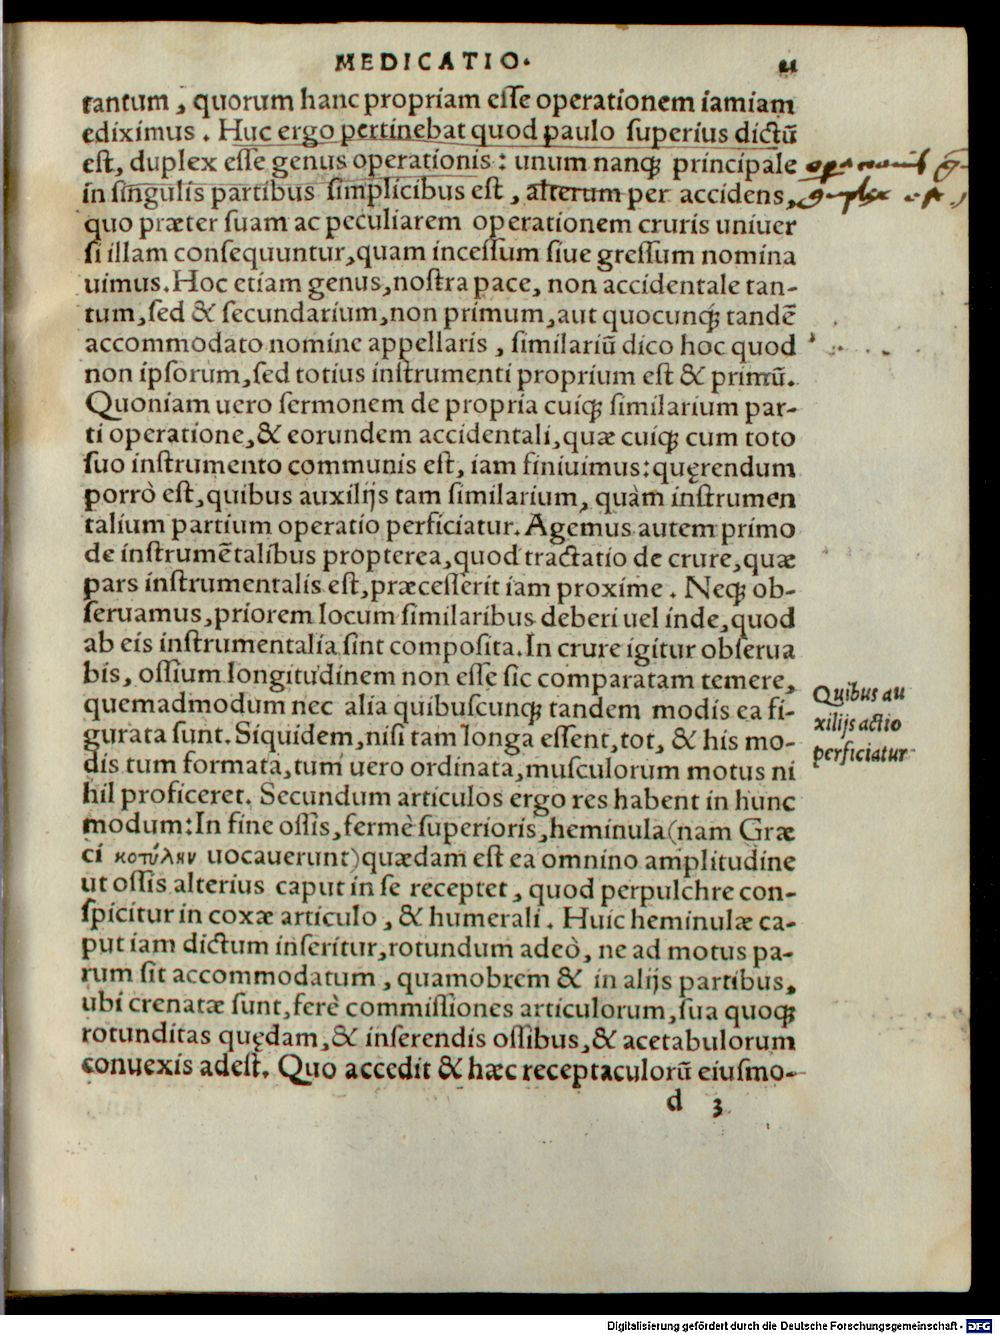 MEDICATIO.
tantum, quorum hanc propriam esse operationem iamiam
ediximus. Huc ergo pertinebat quod paulo superius dictũ
est, duplex esse genus operationis: unum nanq; principale
in singulis partibus simplicibus est, alterum per accidens,
quo præter suam ac peculiarem operationem cruris uniuer
si illam consequuntur, quam incessum siue gressum nomina
uimus. Hoc etiam genus, nostra pace, non accidentale tan-
tum, sed & secundarium, non primum, aut quocunq; tandẽ
accommodato nomine appellaris, similariũ dico hoc quod
non ipsorum, sed totius instrumenti proprium est & primũ.
Quoniam uero sermonem de propria cuiq; similarium par-
ti operatione, & eorundem accidentali, quæ cuiq; cum toto
suo instrumento communis est, iam finiuimus: quęrendum
porrò est, quibus auxilijs tam similarium, quàm instrumen
talium partium operatio perficiatur. Agemus autem primo
de instrumẽtalibus propterea, quod tractatio de crure, quæ
pars instrumentalis est, præcesserit iam proxime. Neq; ob-
seruamus, priorem locum similaribus deberi uel inde, quod
ab eis instrumentalia sint composita. In crure igitur obserua
bis, ossium longitudinem non esse sic comparatam temere,
quemadmodum nec alia quibuscunq; tandem modis ea fi-
gurata sunt. Siquidem, nisi tam longa essent, tot, & his mo-
dis tum formata, tum uero ordinata, musculorum motus ni
hil proficeret. Secundum articulos ergo res habent in hunc
modum: In fine ossis, fermè superioris, heminula (nam Græ
ci κοτύλην uocauerunt) quædam est ea omnino amplitudine
ut ossis alterius caput in se receptet, quod perpulchre con-
spicitur in coxæ articulo, & humerali. Huic heminulæ ca-
put iam dictum inseritur, rotundum adeò, ne ad motus pa-
rum sit accommodatum, quamobrem & in alijs partibus,
ubi crenatæ sunt, ferè commissiones articulorum, sua quoq;
rotunditas quędam, & inserendis ossibus, & acetabulorum
conuexis adest. Quo accedit & hæc receptaculorũ eiusmo-
d 3
Quibus au
xilijs actio
perficiatur
Digitalisierung gefördert durch die Deutsche Forschungsgemeinschaft - DFG